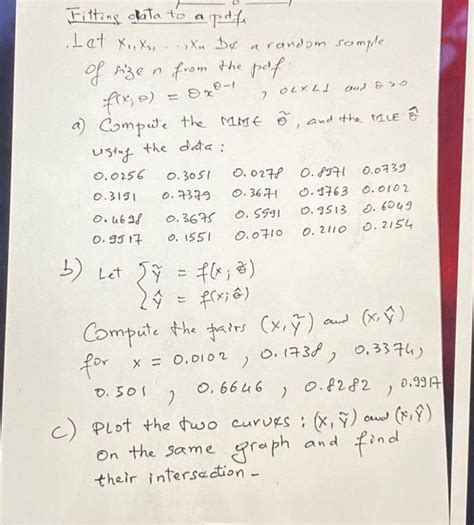 Fitting data to a pdf.
.Let X₁, X₂, ..., Xₙ be a random sample
of size n from the pdf:
f(x; θ) = θ x^(θ-1) , 0<x<1 and θ>0
a) Compute the MME θ̃, and the MLE θ̂
using the data:
0.0256 0.3051 0.0278 0.8971 0.0739
0.3191 0.7379 0.3671 0.9763 0.0102
0.4698 0.3675 0.5991 0.9513 0.6049
0.9917 0.1551 0.0710 0.2110 0.2154
b) Let { ỹ = f(x; θ̃)
ŷ = f(x; θ̂)
Compute the pairs (x, ỹ) and (x, ŷ)
for x = 0.0102, 0.1738, 0.3374,
0.501, 0.6646, 0.8282, 0.9917
c) Plot the two curves: (x, ỹ) and (x, ŷ)
on the same graph and find
their intersection-